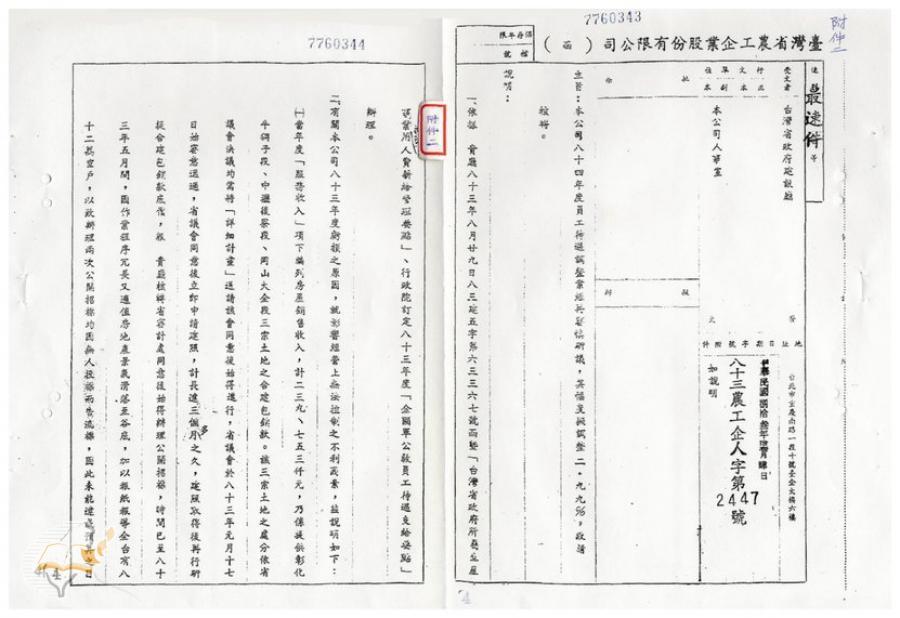 附件二
7760343
臺灣省農工企業股份有限公司（函）
保存年限
檔號
速 最速件 等
受文者 台灣省政府建設廳
行文單位
正本
副本 本公司人事室
批 命
擬 辦
發文
地址 台北市重慶南路一段十號臺企大樓六樓
日期 中華民國捌拾叁年 月 日
字號 八十三農工企人字第2447號
附件 如說明
主旨：本公司八十四年度員工待遇調整業經再審慎研議，其幅度擬調整二．九九％，敬請
核備。
說明：
一、依據 貴廳八十三年八月廿九日八三建五字第六三三六七號函暨「台灣省政府所屬生產
4
7760344
附件二
事業用人費薪給管理要點」、行政院訂定八十三年度「全國軍公教員工待遇支給要點」
辦理。
二、有關本公司八十三年度虧損之原因，就影響經營上無法控制之不利因素，茲說明如下：
㈠當年度「服務收入」項下編列房屋銷售收入，計二三九、七五三仟元，乃係提供彰化
牛稠子段、中壢後寮段、岡山大全段三宗土地之合建包銷款。該三宗土地之處分依省
議會決議均需將「詳細計畫」送請該會同意後始得進行，省議會於八十三年元月十七
日始審意通過，省議會同意後立即申請建照，計長達三個多月之久，建照取得後再行研
提合建包銷款底價，報 貴廳核轉省審計處同意後始得辦理公開招標，時間已至八十
三年五月間，因作業程序冗長又適值房地產景氣滑落至谷底，加以報紙報導全台有八
十二萬空戶，以致辦理兩次公開招標均因無人投標而告流標，因此未能達成預算目